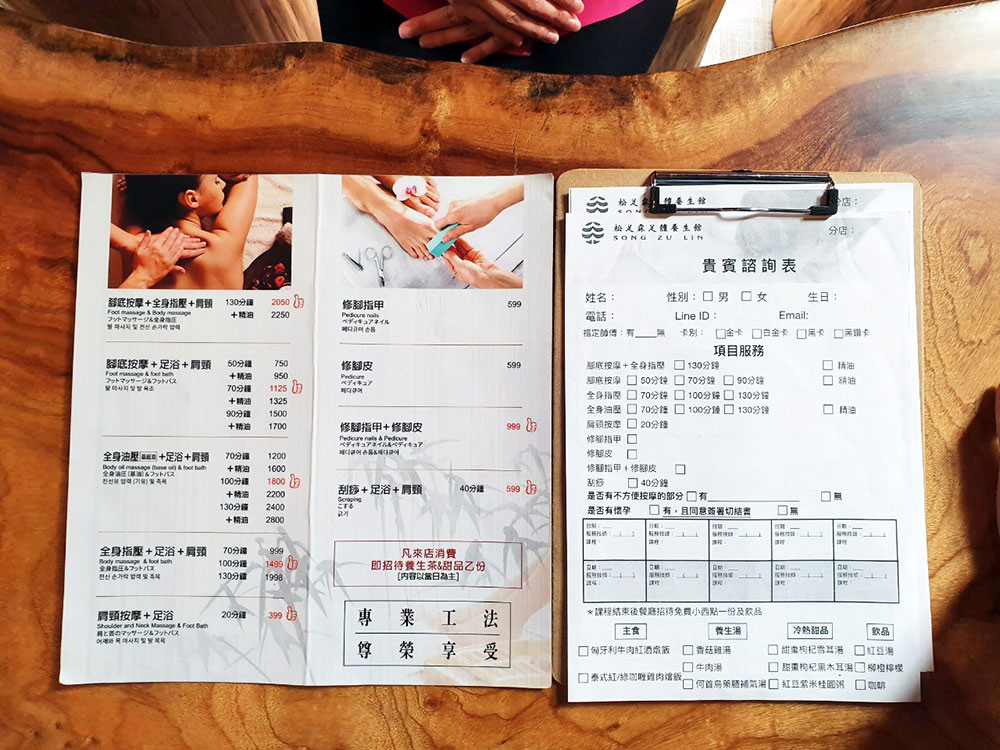 腳底按摩+全身指壓+肩頸 130分鐘 2050
Foot massage & Body massage +精油 2250
フットマッサージ&全身指圧
발 마사지 및 전신 손가락 압력
腳底按摩+足浴+肩頸 50分鐘 750
Foot massage & foot bath +精油 950
フットマッサージ&フットバス 70分鐘 1125
발 마사지 및 발 목욕 +精油 1325
90分鐘 1500
+精油 1700
全身油壓 +足浴+肩頸 70分鐘 1200
Body oil massage (base oil) & foot bath +精油 1600
全身油圧(基油)&フットバス 100分鐘 1800
전신유 압력 (기유) 및 족욕 +精油 2200
130分鐘 2400
+精油 2800
全身指壓+足浴+肩頸 70分鐘 999
Body massage & foot bath 100分鐘 1499
全身指圧&フットバス 130分鐘 1998
전신 손가락 압력 및 족욕
肩頸按摩+足浴 20分鐘 399
Shoulder and Neck Massage & Foot Bath
肩と首のマッサージ&フットバス
어깨와 목 마사지 및 발 목욕
修腳指甲 599
Pedicure nails
ペディキュアネイル
페디큐어 손톱
修腳皮 599
Pedicure
ペディキュア
페디큐어
修腳指甲+修腳皮 999
Pedicure nails & Pedicure
ペディキュアネイル&ペディキュア
페디큐어 손톱&페디큐어
刮痧+足浴+肩頸 40分鐘 599
Scraping
こする
긁기
凡來店消費
即招待養生茶&甜品乙份
[內容以當日為主]
專業工法
尊榮享受
松足森足體養生館 分店:
SONG
松足森足體養生館 分店:
SONG ZU LIN
貴賓諮詢表
姓名: 性別: □男 □女 生日:
電話: Line ID: Email:
指定師傅:有___無 卡別: □金卡 □白金卡 □黑卡 □黑鑽卡
項目服務
腳底按摩+全身指壓 □130分鐘 □精油
腳底按摩 □50分鐘 □70分鐘 □90分鐘 □精油
全身指壓 □70分鐘 □100分鐘 □130分鐘
全身油壓 □70分鐘 □100分鐘 □130分鐘 □精油
肩頸按摩 □20分鐘
修腳指甲 □
修腳皮 □
修腳指甲+修腳皮 □
刮痧 □40分鐘
是否有不方便按摩的部分 □有 □無
是否有懷孕 □有,且同意簽署切結書 □無
日期: 日期: 日期: 日期: 日期:
服務技師: 服務技師: 服務技師: 服務技師: 服務技師:
課程: 課程: 課程: 課程: 課程:
日期: 日期: 日期: 日期: 日期:
服務技師: 服務技師: 服務技師: 服務技師: 服務技師:
課程: 課程: 課程: 課程: 課程:
*課程結束後餐廳招待免費小西點一份及飲品
主食 養生湯 冷熱甜品 飲品
□匈牙利牛肉紅酒燉飯 □香菇雞湯 □甜棗枸杞雪耳湯 □紅豆湯
□牛肉湯 □甜棗枸杞黑木耳湯 □柳橙檸檬
□泰式紅/綠咖喱雞肉燴飯 □何首烏藥膳補氣湯 □紅豆紫米桂圓粥 □咖啡